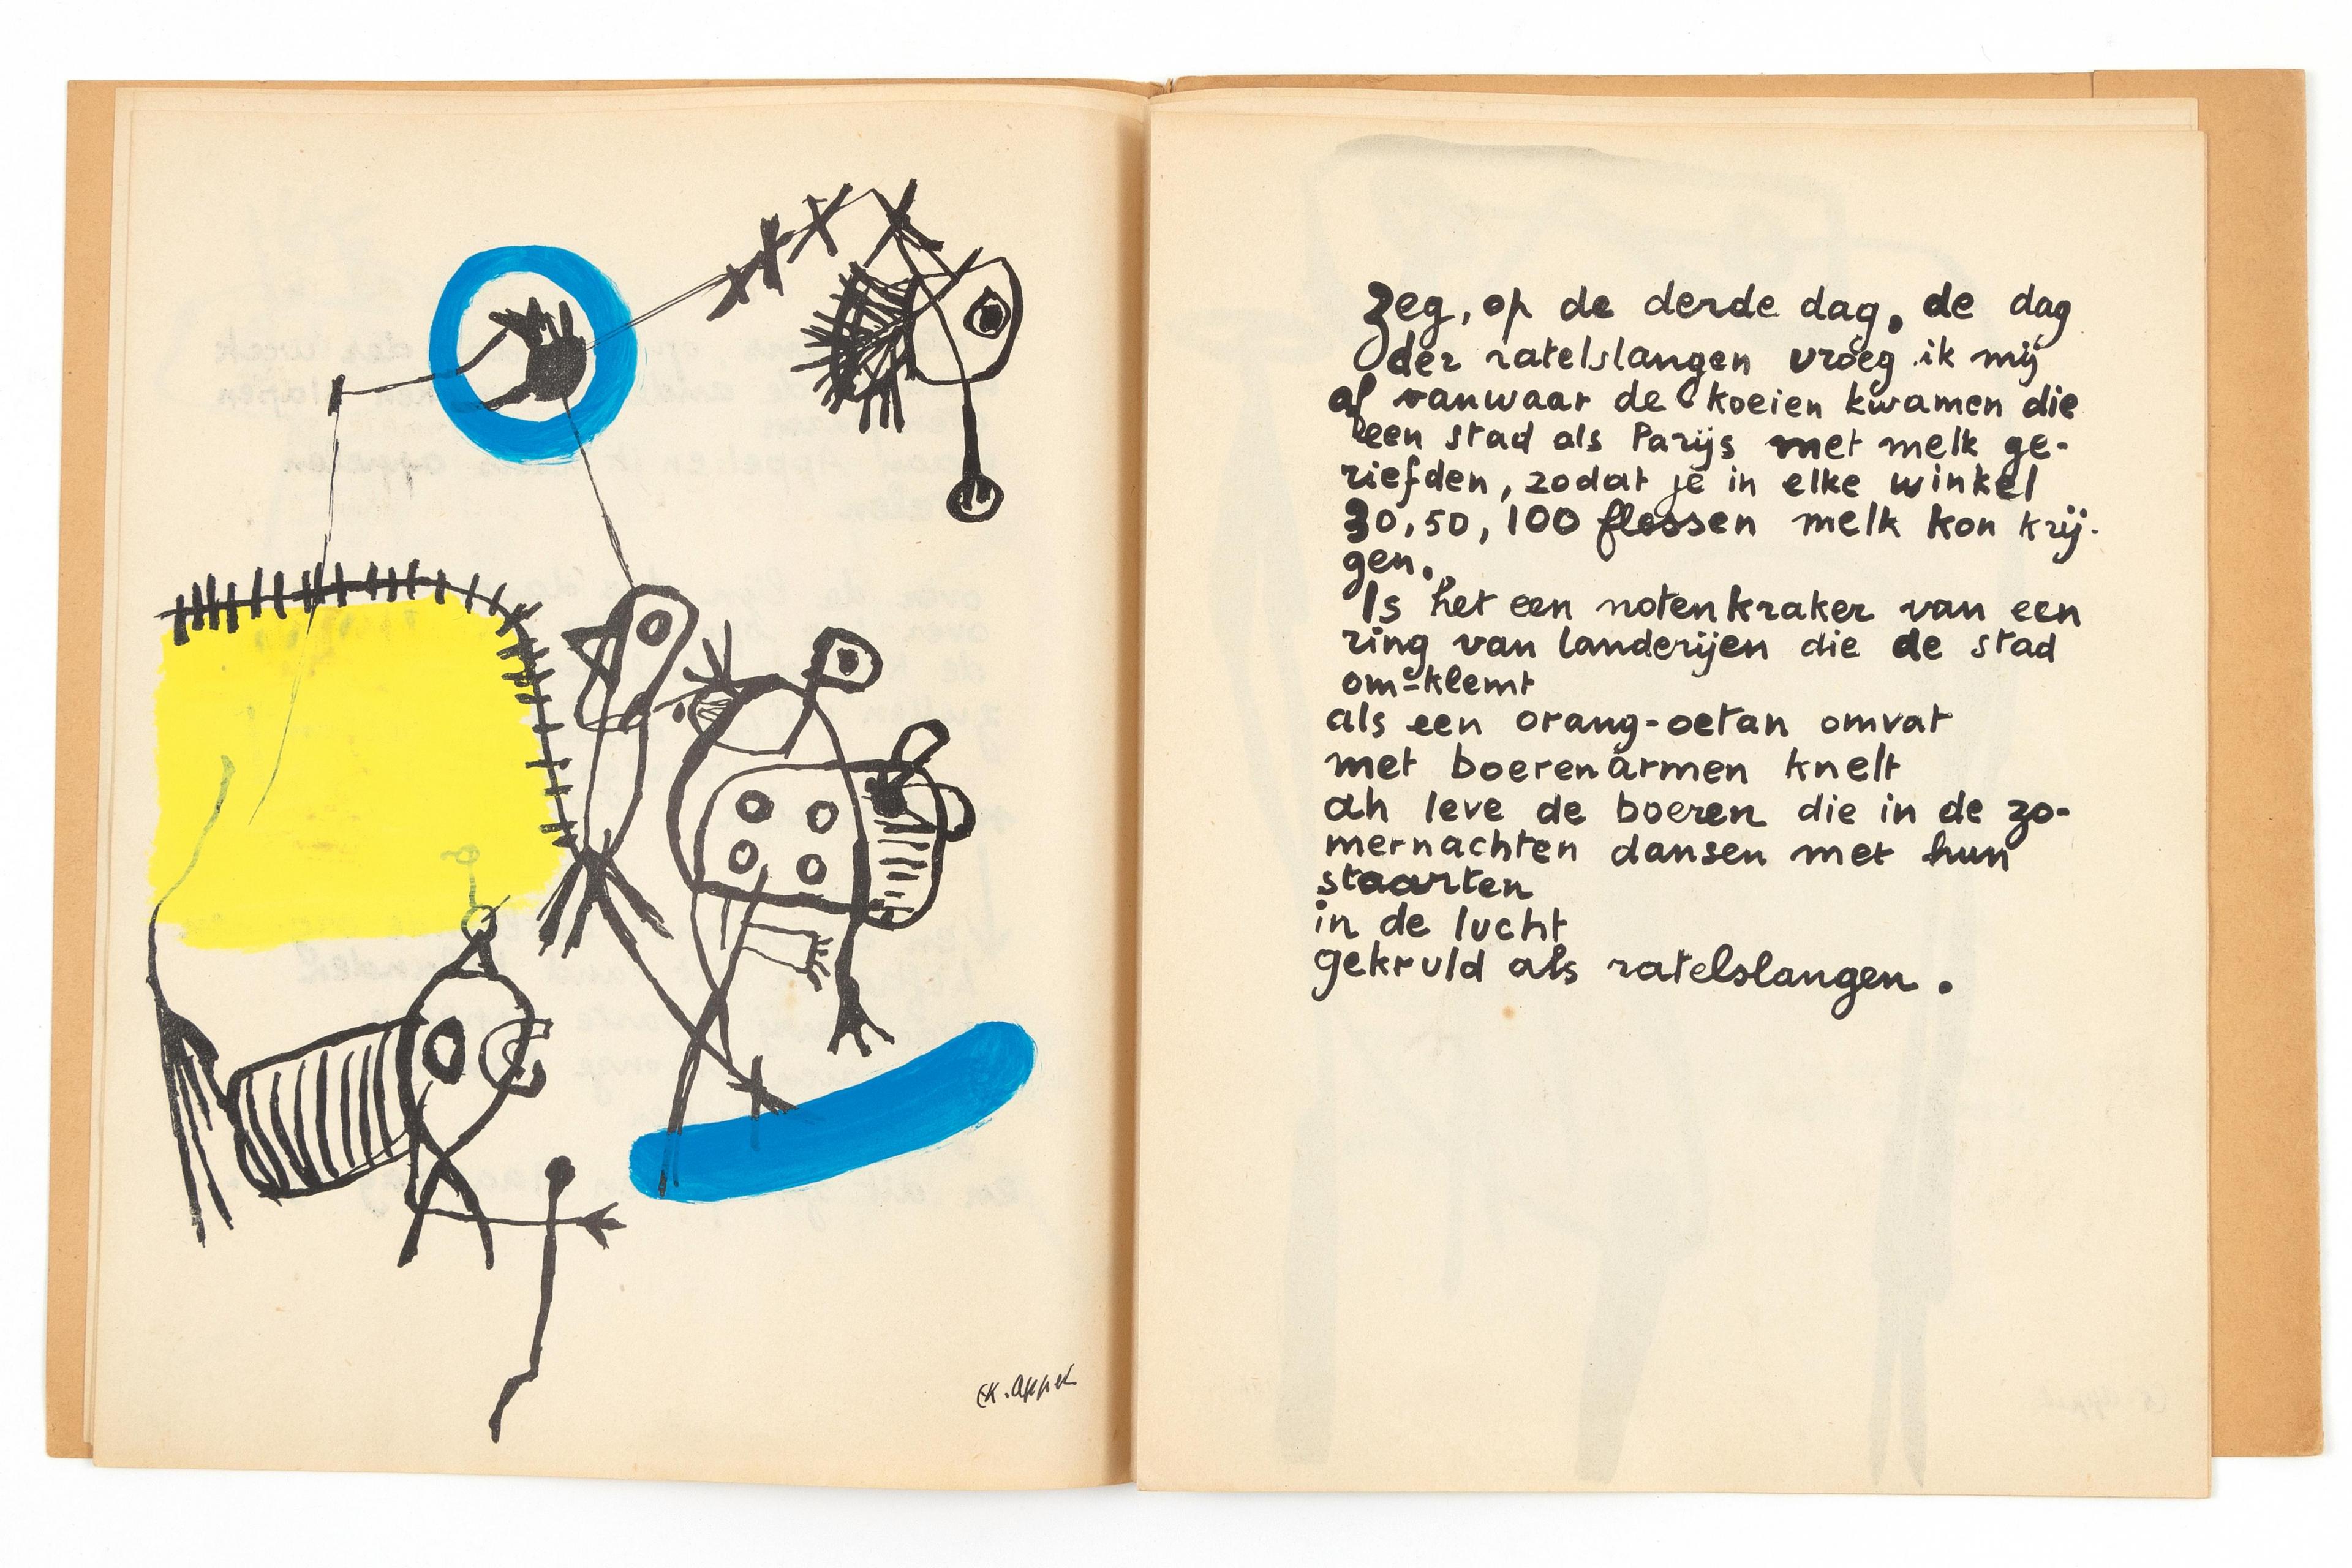 K. Appel
Zeg, op de derde dag, de dag
der ratelslangen vroeg ik mij
af vanwaar de koeien kwamen die
een stad als Parijs met melk ge-
riefden, zodat je in elke winkel
30, 50, 100 flessen melk kon krij-
gen.
Is het een notenkraker van een
ring van landerijen die de stad
om-klemt
als een orang-oetan omvat
met boerenarmen knelt
ah leve de boeren die in de zo-
mernachten dansen met hun
staarten
in de lucht
gekruld als ratelslangen.